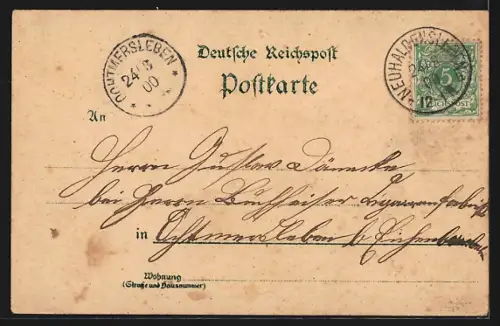 OCHTMERSLEBEN
24
00
Deutsche Reichspost
Postkarte
NEUHALDENSLEBEN
24
12
5
REICHSPOST
An
Herrn Gustav Dännecke
bei Herrn Buchheiser Zigarrenfabrik
in Ochtmersleben b/ Eichenbarleben
Wohnung
(Straße und Hausnummer)